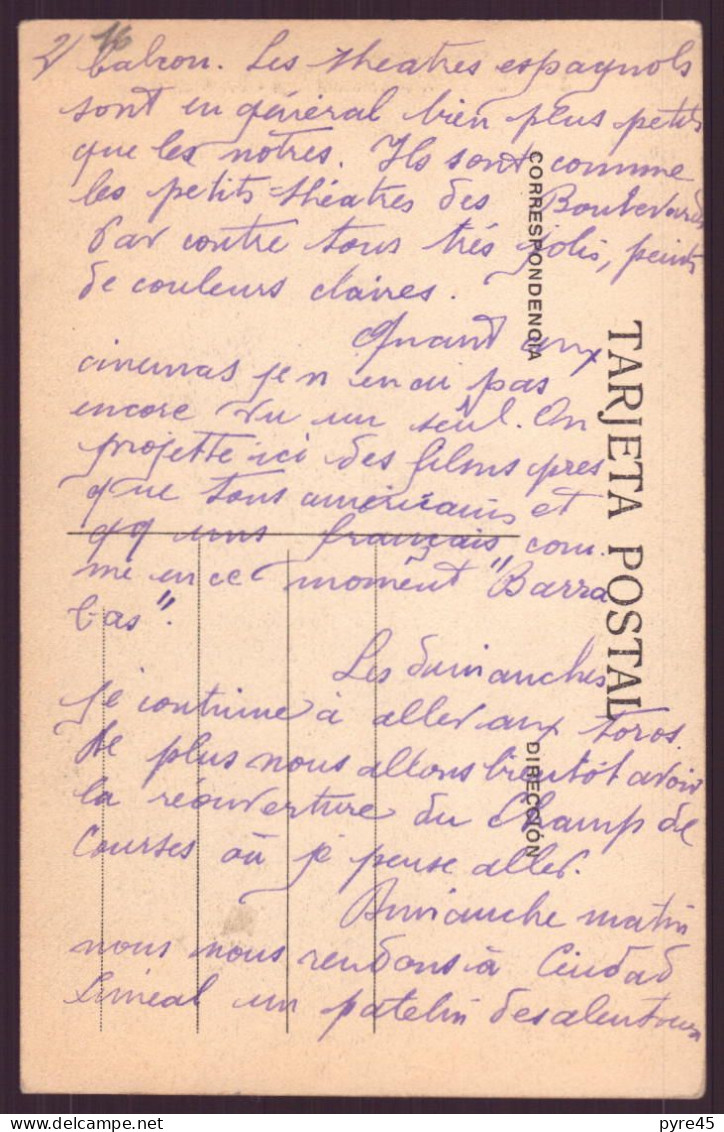 2/ 16
balcon. Les théatres espagnols
sont en général bien plus petits
que les notres. Ils sont comme
les petits théatres des Boulevards
Par contre tous très jolis, peints
de couleurs claires.
Quant aux
cinemas je n'en ai pas
encore vu un seul. On
projette ici des films pres
que tous américains et
qq uns français, com
me en ce moment "Barra
bas".
Les dimanches
je continue à aller aux toros.
De plus nous allons bientôt avoir
la réouverture du Champ de
Courses où je pense aller.
Dimanche matin
nous nous rendons à Ciudad
Lineal un patelin des alentours
TARJETA POSTAL
CORRESPONDENCIA
DIRECCIÓN
pyre45